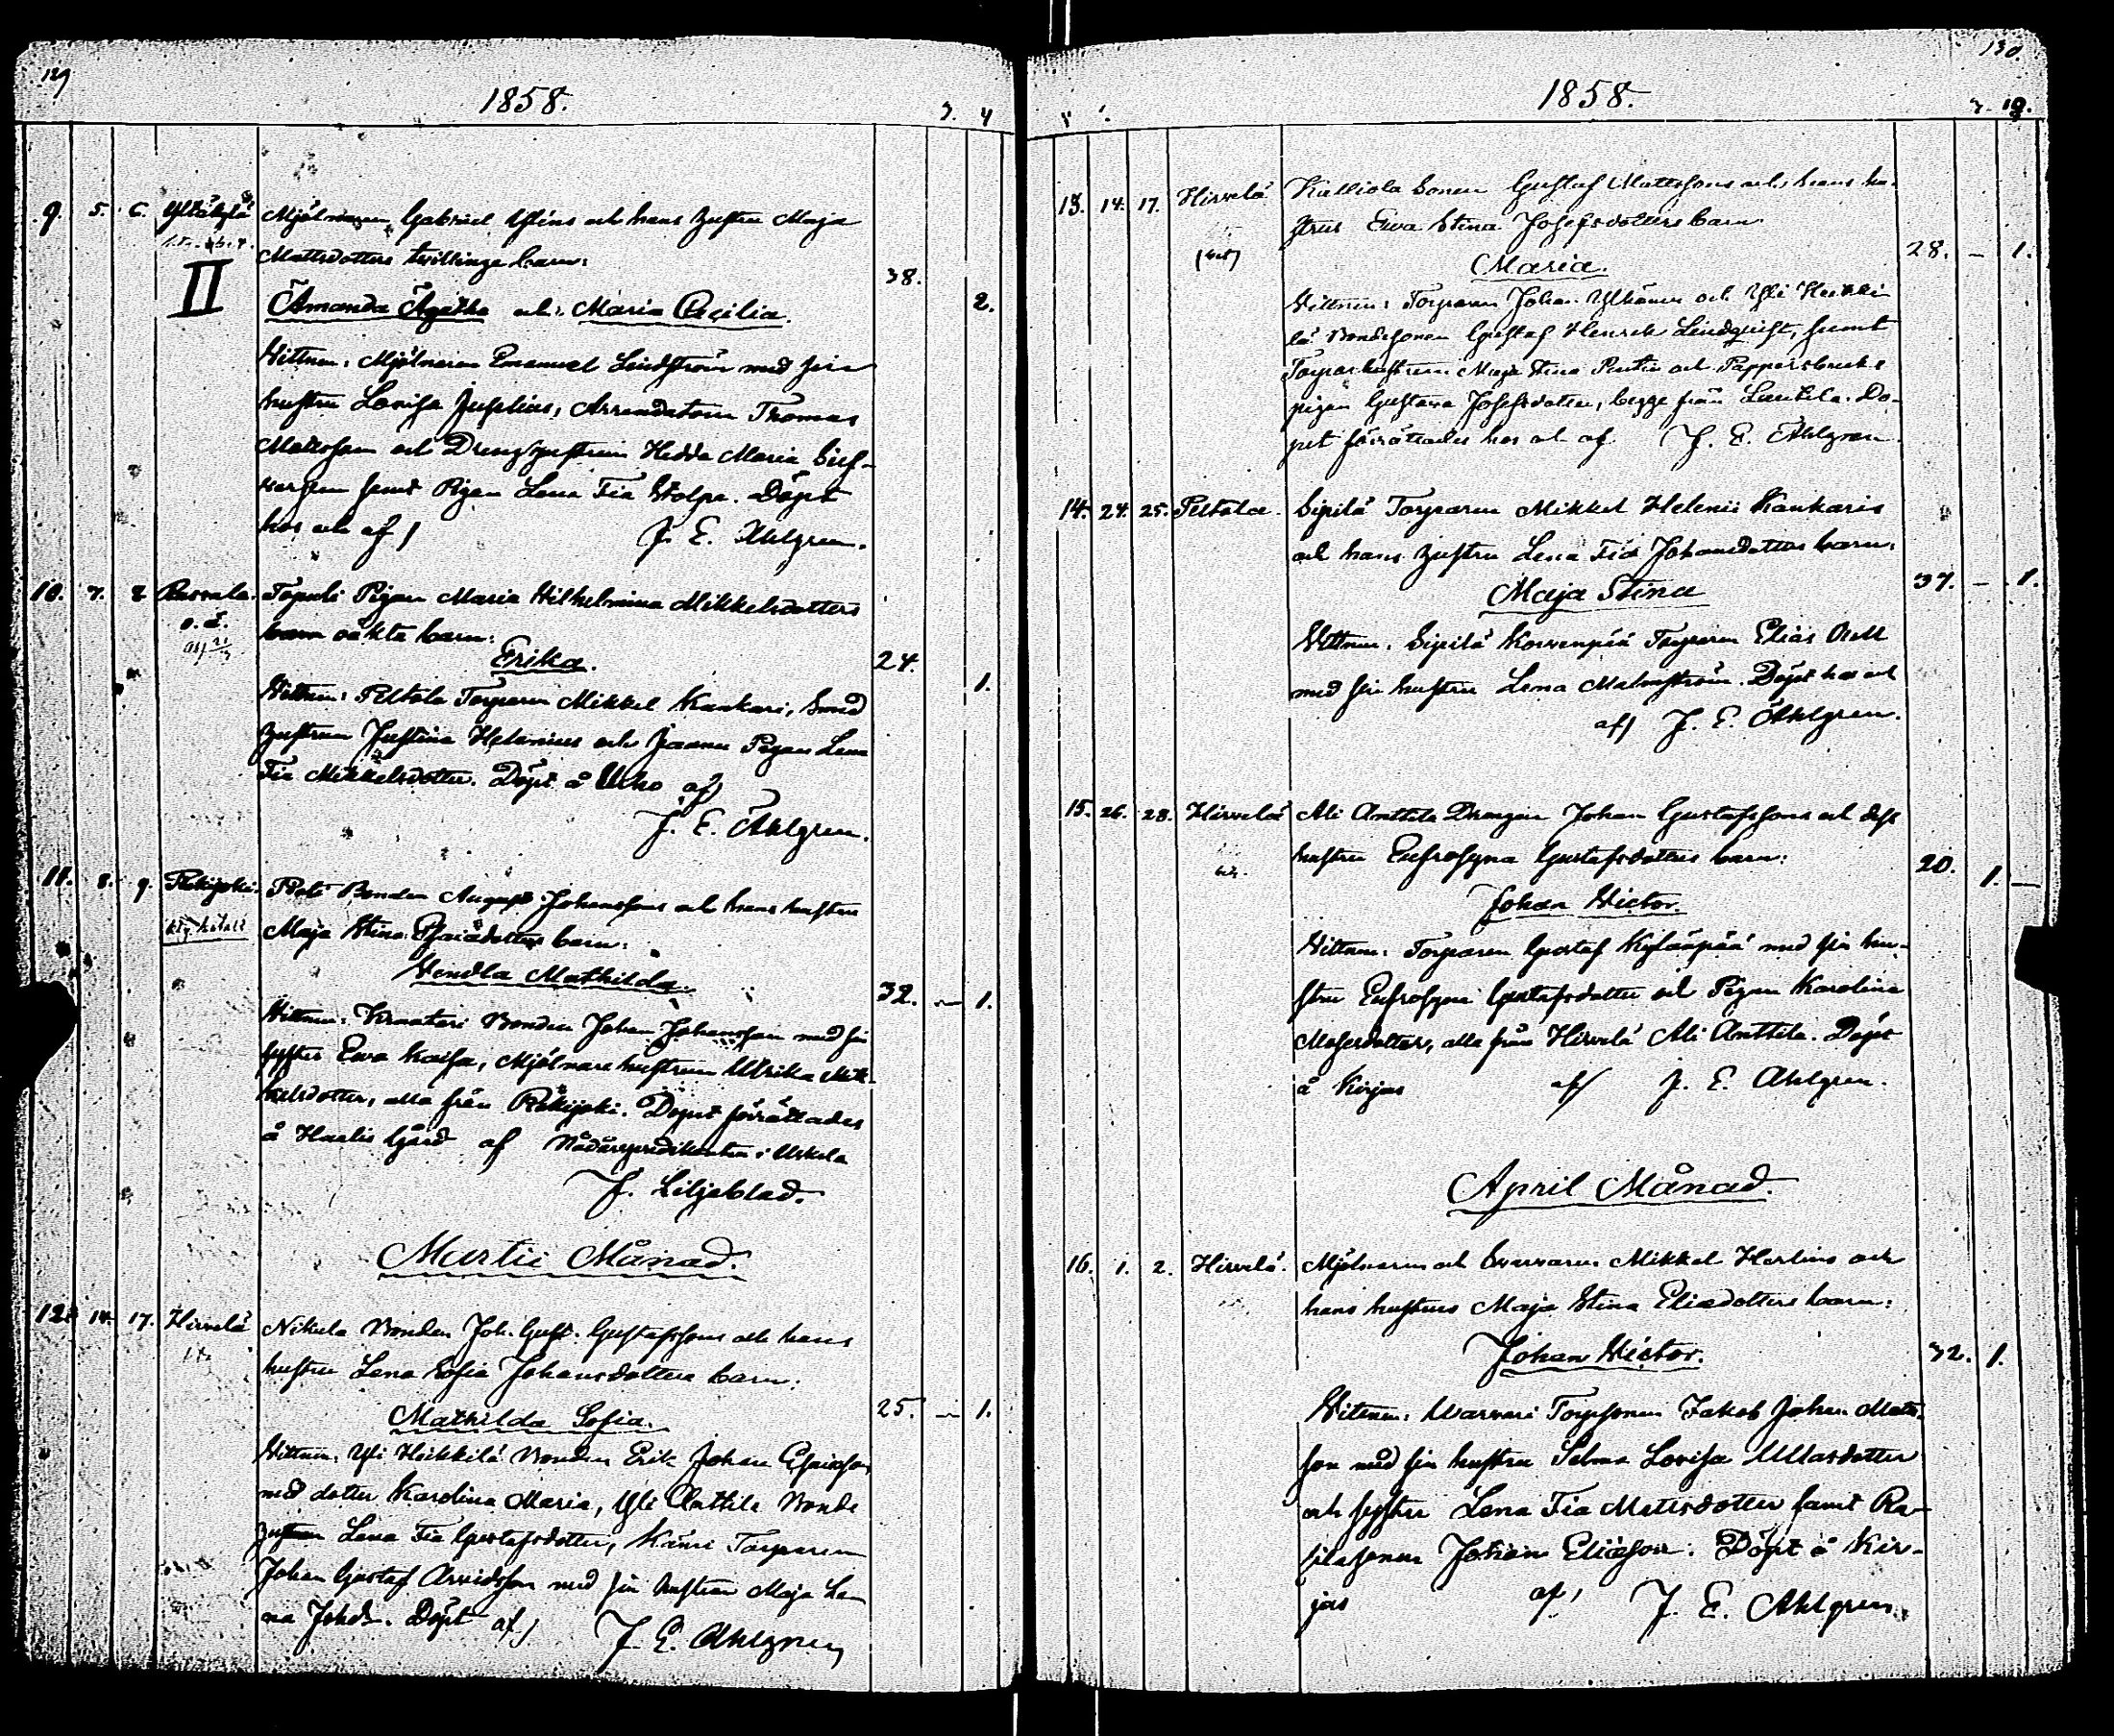 129
1858.
3. 4
9. 5. 6. Yltäkylä Mjölnaren Gabriel Ylens och hans hustru Maja
Mattsdotters tvillinge barn:
II
38. 2.
Amanda Agatha och Maria Cecilia.
Vittnen: Mjölnaren Emanuel Lindström med sin
hustru Lovisa Juselius, Arrendatorn Thomas
Mattsson och Drenghustrun Hedda Maria
samt Pigan Lena Fia Stolpe. Döpt
hos och af / J. E. Ahlgren.
10. 7. 8. Topuli Pigan Maria Wilhelmina Mikkelsdotters
o. ä. barn oäkta barn:
Erika. 24. 1.
Vittnen: Peltola Torparen Mikkel Kankari, Smed
hustrun Justina Helenius och Jaanu Pigan Lena
Fia Mikkelsdotter. Döpt å Urho af
J. E. Ahlgren.
11. 8. 9. Rekijoki. Bonden August Johanssons och hans hustru
Maja Stina Esaiædotters barn:
Wendla Mathilda 32. — 1.
Vittnen: Bonden Johan Johansson med sin
syster Ewa Kaisa, Mjölnare hustrun Ulrika Mik-
kelsdotter, alla från Rekijoki. Dopet förrättades
å Haalis Gård af Nådårspredikanten i Uskela
J. Liljeblad.
Martii Månad.
12. 14. 17. Hirvelä Nikula Bonden Joh. Gust. Gustafssons och hans
hustru Lena Sofia Johansdotters barn:
Mathilda Sofia. 25. — 1.
Vittnen: Yli Heikkilä Bonden Erik Johan Esaiasson
med dotter Karolina Maria, Yli Anttila Bonde
hustrun Lena Fia Gustafsdotter, Torparen
Johan Gustaf Arvidsson med sin hustru Maja Le-
na Johsdr. Döpt af / J. E. Ahlgren
130.
1858.
13. 14. 17. Hirvelä Kalliola Sonen Gustaf Mattssons och hans hu-
strus Ewa Stina Josefsdotters barn
Maria. 28. — 1.
Vittnen: Torparen Johan och Yli Heikki
lä Bondesonen Gustaf Henrik Lindqvist, samt
Torparhustrun Maja Stina och Pappersbruks
pigan Gustava Josefsdotter, begge från Laukela. Do-
pet förrättades hos och af J. E. Ahlgren
14. 24. 25. Peltola. Sipilä Torparen Mikkel Helenii Kankaris
och hans hustru Lena Fia Johansdotters barn:
Maja Stina 37. — 1.
Vittnen: Sipilä Korvenpää Torparen Elias
med sin hustru Lena Malmström. Döpt hos och
af / J. E. Ahlgren.
15. 26. 28. Hirvelä Ali Anttila Drengen Johan Gustafssons och dess
hustru Eufrosyna Gustafsdotters barn:
Johan Victor. 20. 1. —
Vittnen: Torparen Gustaf Kylänpää med sin hu-
stru Eufrosyna Gustafsdotter och Pigan Karolina
Mosesdotter, alla från Hirvelä Ali Anttila. Döpt
å Kirjas af / J. E. Ahlgren.
April Månad.
16. 1. 2. Hirvelä. Mjölnaren och Svarvaren Mikkel Herlins och
hans hustrus Maja Stina Eliædotters barn:
Johan Victor. 32. 1.
Vittnen: Warvari Torpsonen Jakob Johan Mats-
son med sin hustru Selma Lovisa Ullasdotter
och syster Lena Fia Mattsdotter samt
Johan Eliæson. Döpt å Kir-
jas af / J. E. Ahlgren.